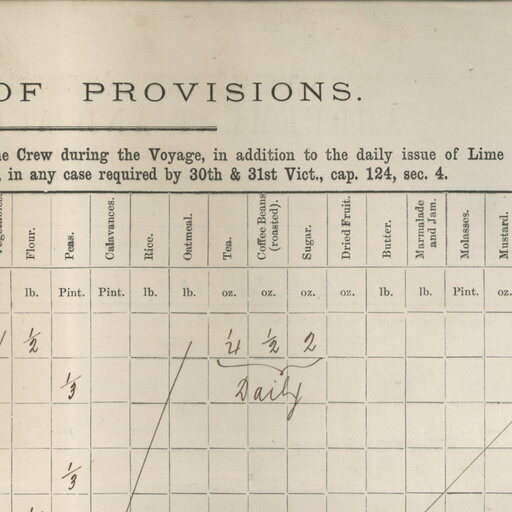 OF PROVISIONS.
e Crew during the Voyage, in addition to the daily issue of Lime
, in any case required by 30th & 31st Vict., cap. 124, sec. 4.
Vegetables. Flour. Peas. Calavances. Rice. Oatmeal. Tea. Coffee Beans (roasted). Sugar. Dried Fruit. Butter. Marmalade and Jam. Molasses. Mustard.
lb. Pint. Pint. lb. lb. oz. oz. oz. oz. lb. lb. Pint. oz.
½ ¼ ½ 2
⅓ Daily
⅓